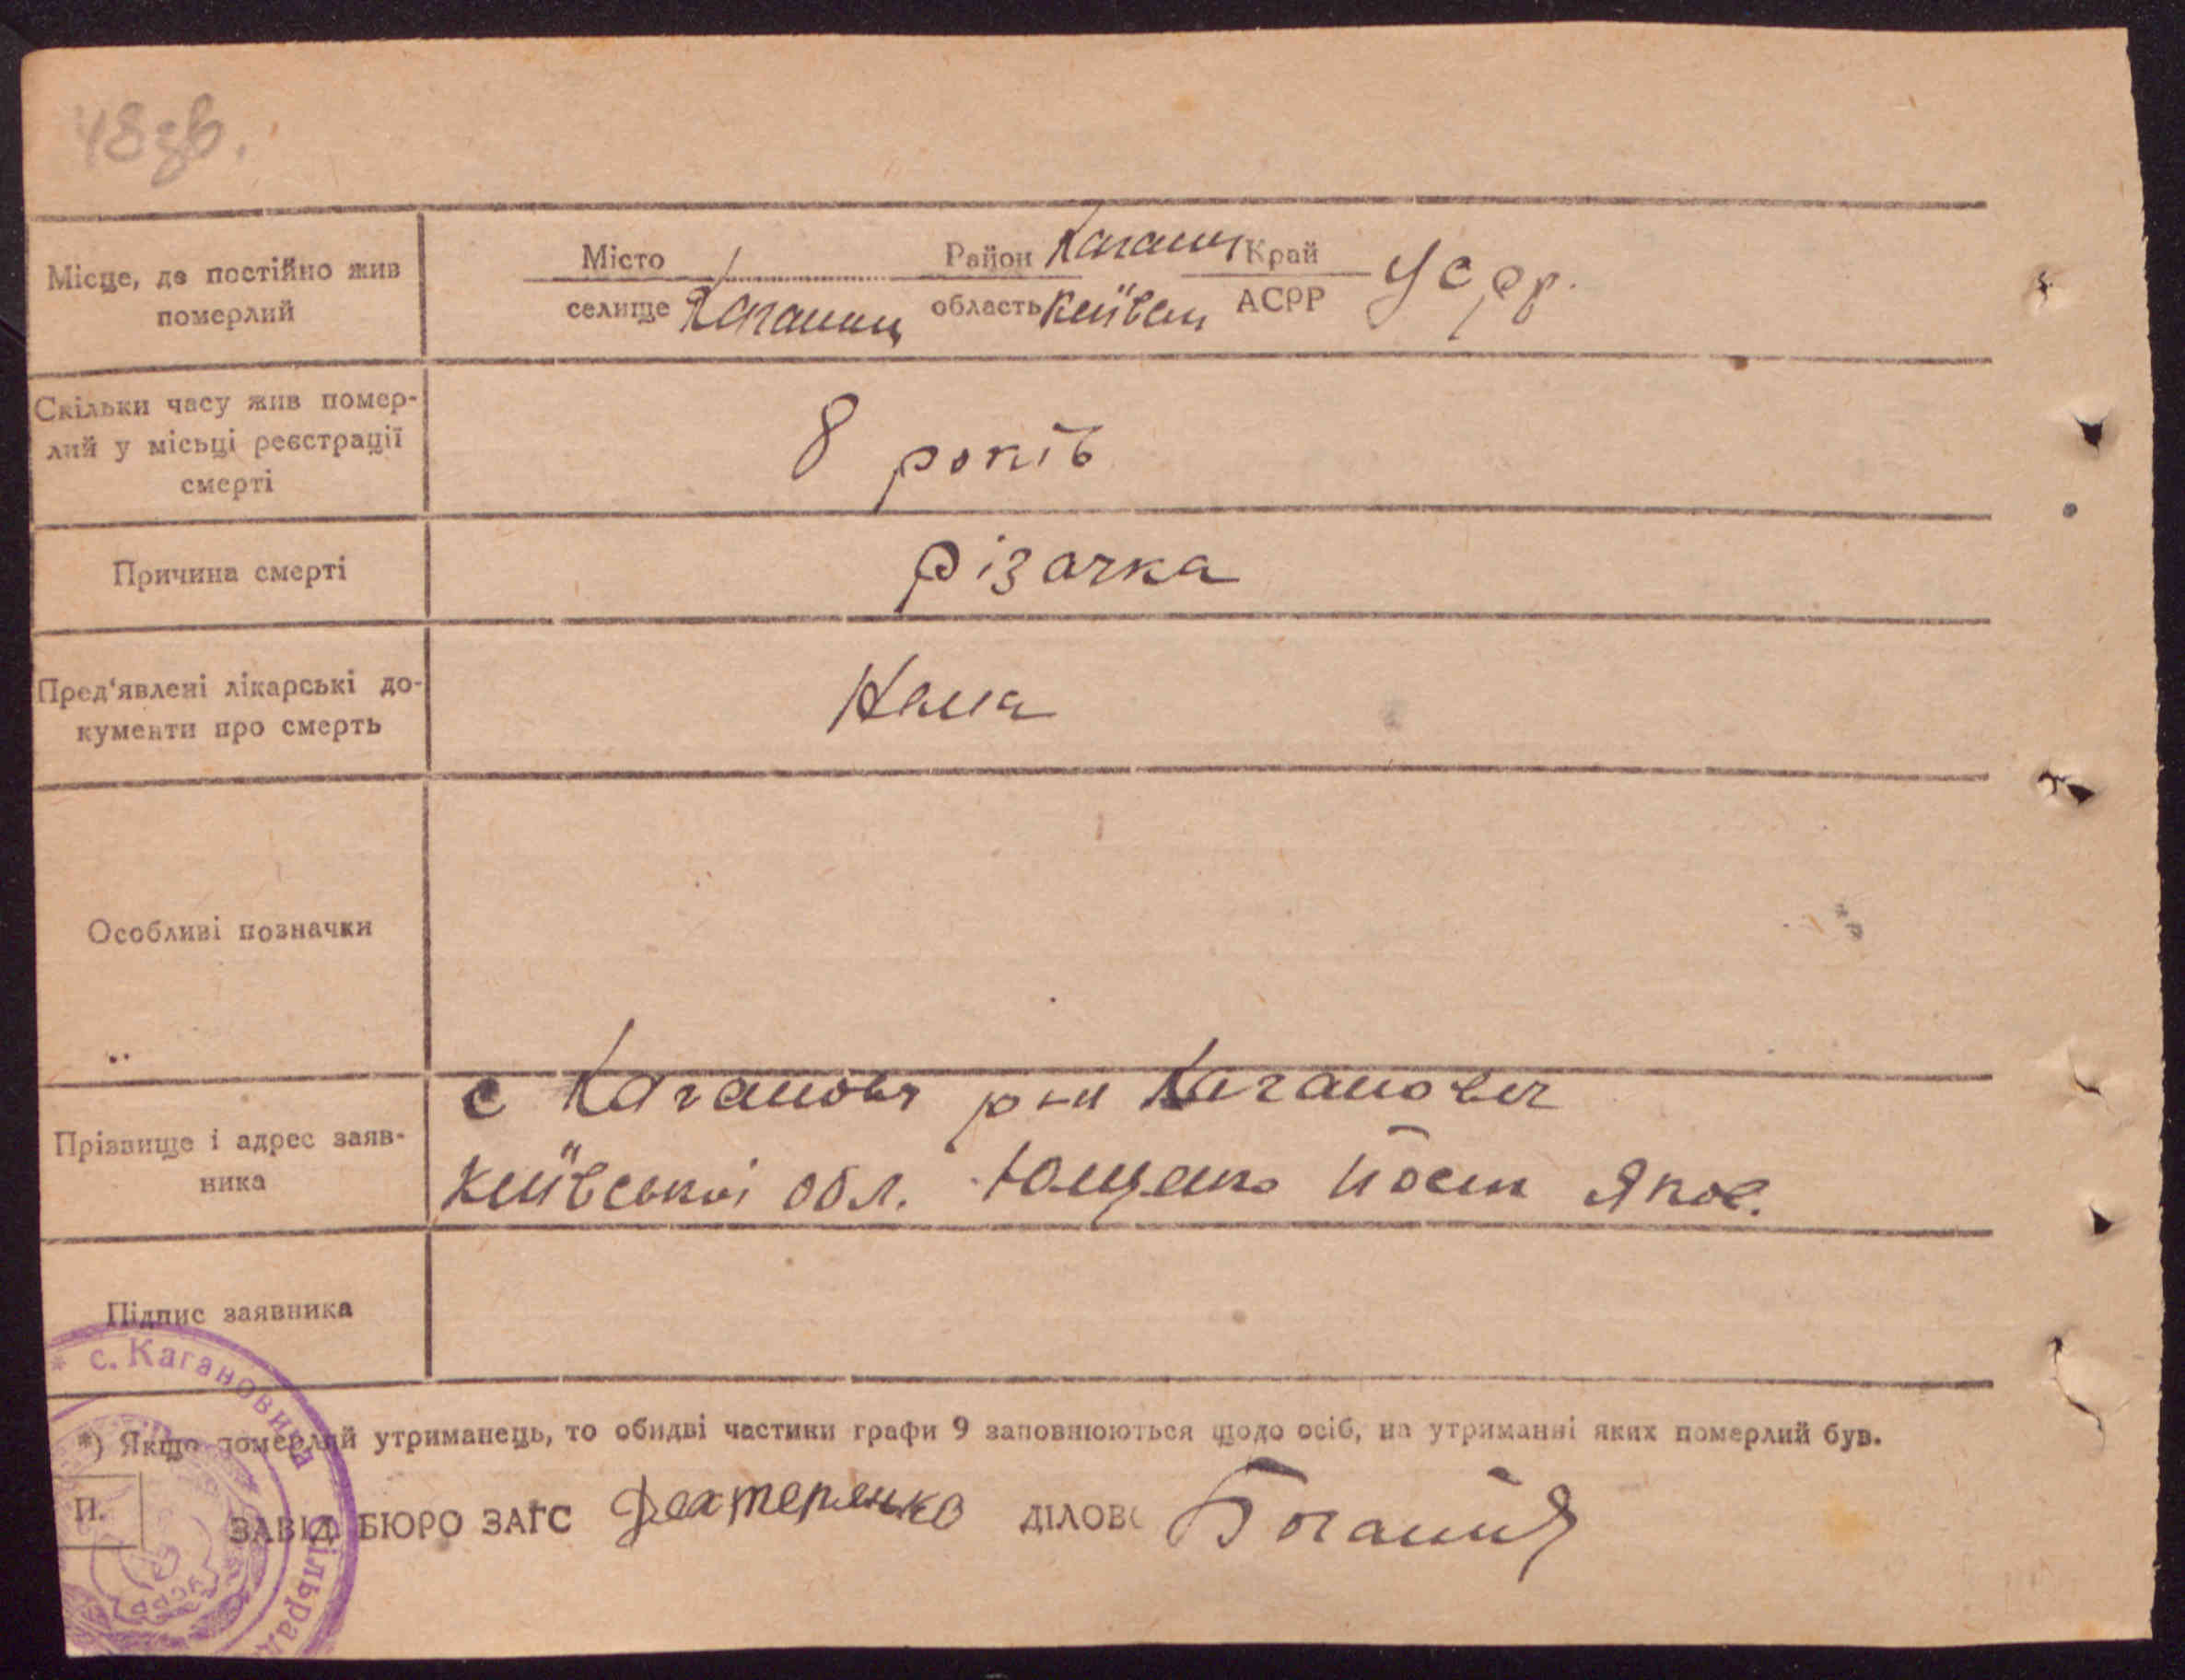 48зв.
Місце, де постійно жив
померлий
Місто
селище Каганович
Район Каганич
область Київськ
Край
АСРР
УСРР.
Скільки часу жив помер-
лий у місьці реєстрації
смерті
8 років
Причина смерті
різачка
Пред'явлені лікарські до-
кументи про смерть
Нема
Особливі позначки
Прізвище і адрес заяв-
ника
с Каганович р-н Каганович
Київської обл. Ющенко Йосип Яков.
Підпис заявника
* с. Кагановича сільрад
*) Якщо померлий утриманець, то обидві частини графи 9 заповнюються щодо осіб, на утриманні яких померлий був.
П.
УСРР
ЗАВІД. БЮРО ЗАГС Дехтеренко ДІЛОВ